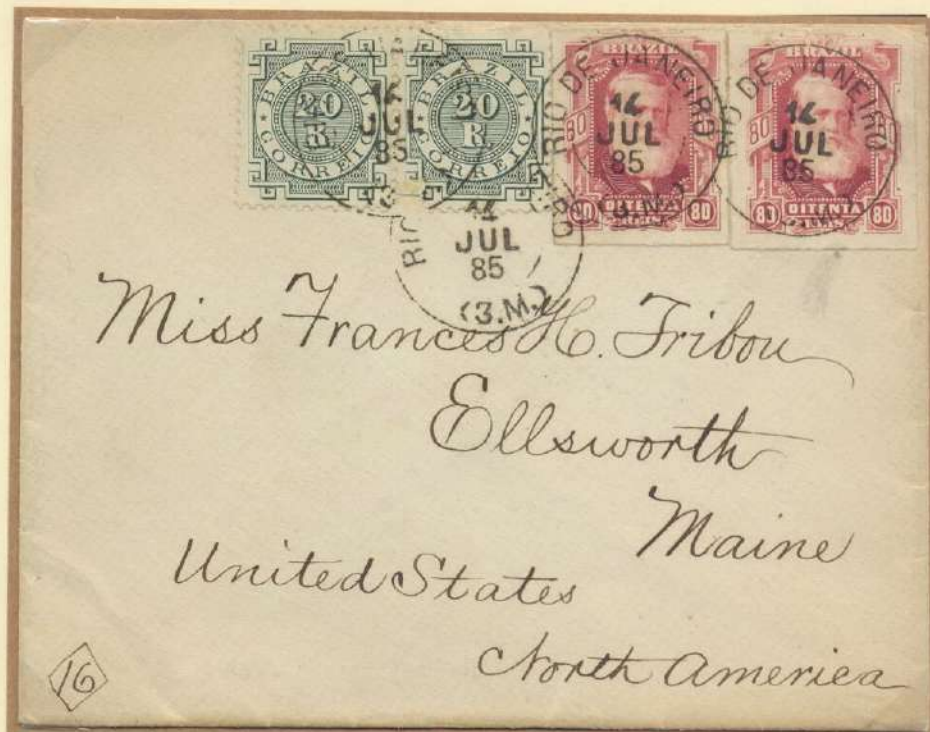 BRAZIL
20
R
CORREIO
BRAZIL
20
R
CORREIO
BRAZIL
80
OITENTA
80 REIS 80
BRAZIL
80
OITENTA
80 REIS 80
14
JUL
85
RIO DE JANEIRO
14
JUL
85
(3.M.)
RIO DE JANEIRO
14
JUL
85
RIO
14
JUL
85
(3.M.)
Miss Frances H. Tribou
Ellsworth
Maine
United States
North America
16